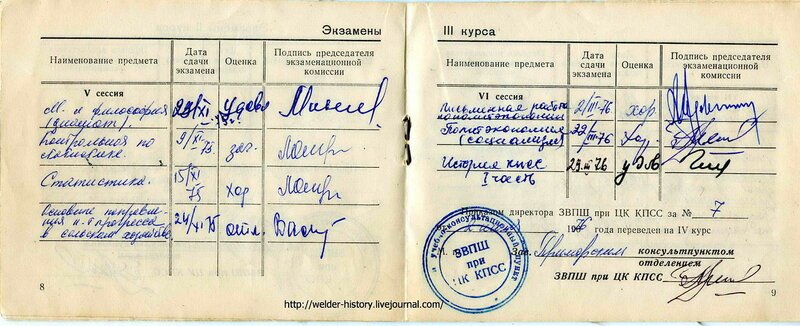 Экзамены
Наименование предмета
Дата сдачи экзамена
Оценка
Подпись председателя экзаменационной комиссии
V сессия
М. л философия
(диамат).
23/XI
удовл
Контрольная по
статистике.
9/XI-75
зач.
Статистика.
15/XI 75
хор
Основные направле-
ния н.-т прогресса
в сельском хозяйстве
24/XI 75
отл.
8
III курса
Наименование предмета
Дата сдачи экзамена
Оценка
Подпись председателя экзаменационной комиссии
VI сессия
Письменная работа
политэкономии
2/III-76
хор.
Политэкономия
(социализм)
22/III-76
хор
История КПСС
I часть
29.III 76
удвл
Приказом директора ЗВПШ при ЦК КПСС за № 7
1976 переведен на IV курс
Зав. Приморским консультпунктом
отделением
ЗВПШ при ЦК КПСС
учебно-консультационный пункт
ЗВПШ
при
ЦК КПСС
9
http://welder-history.livejournal.com/